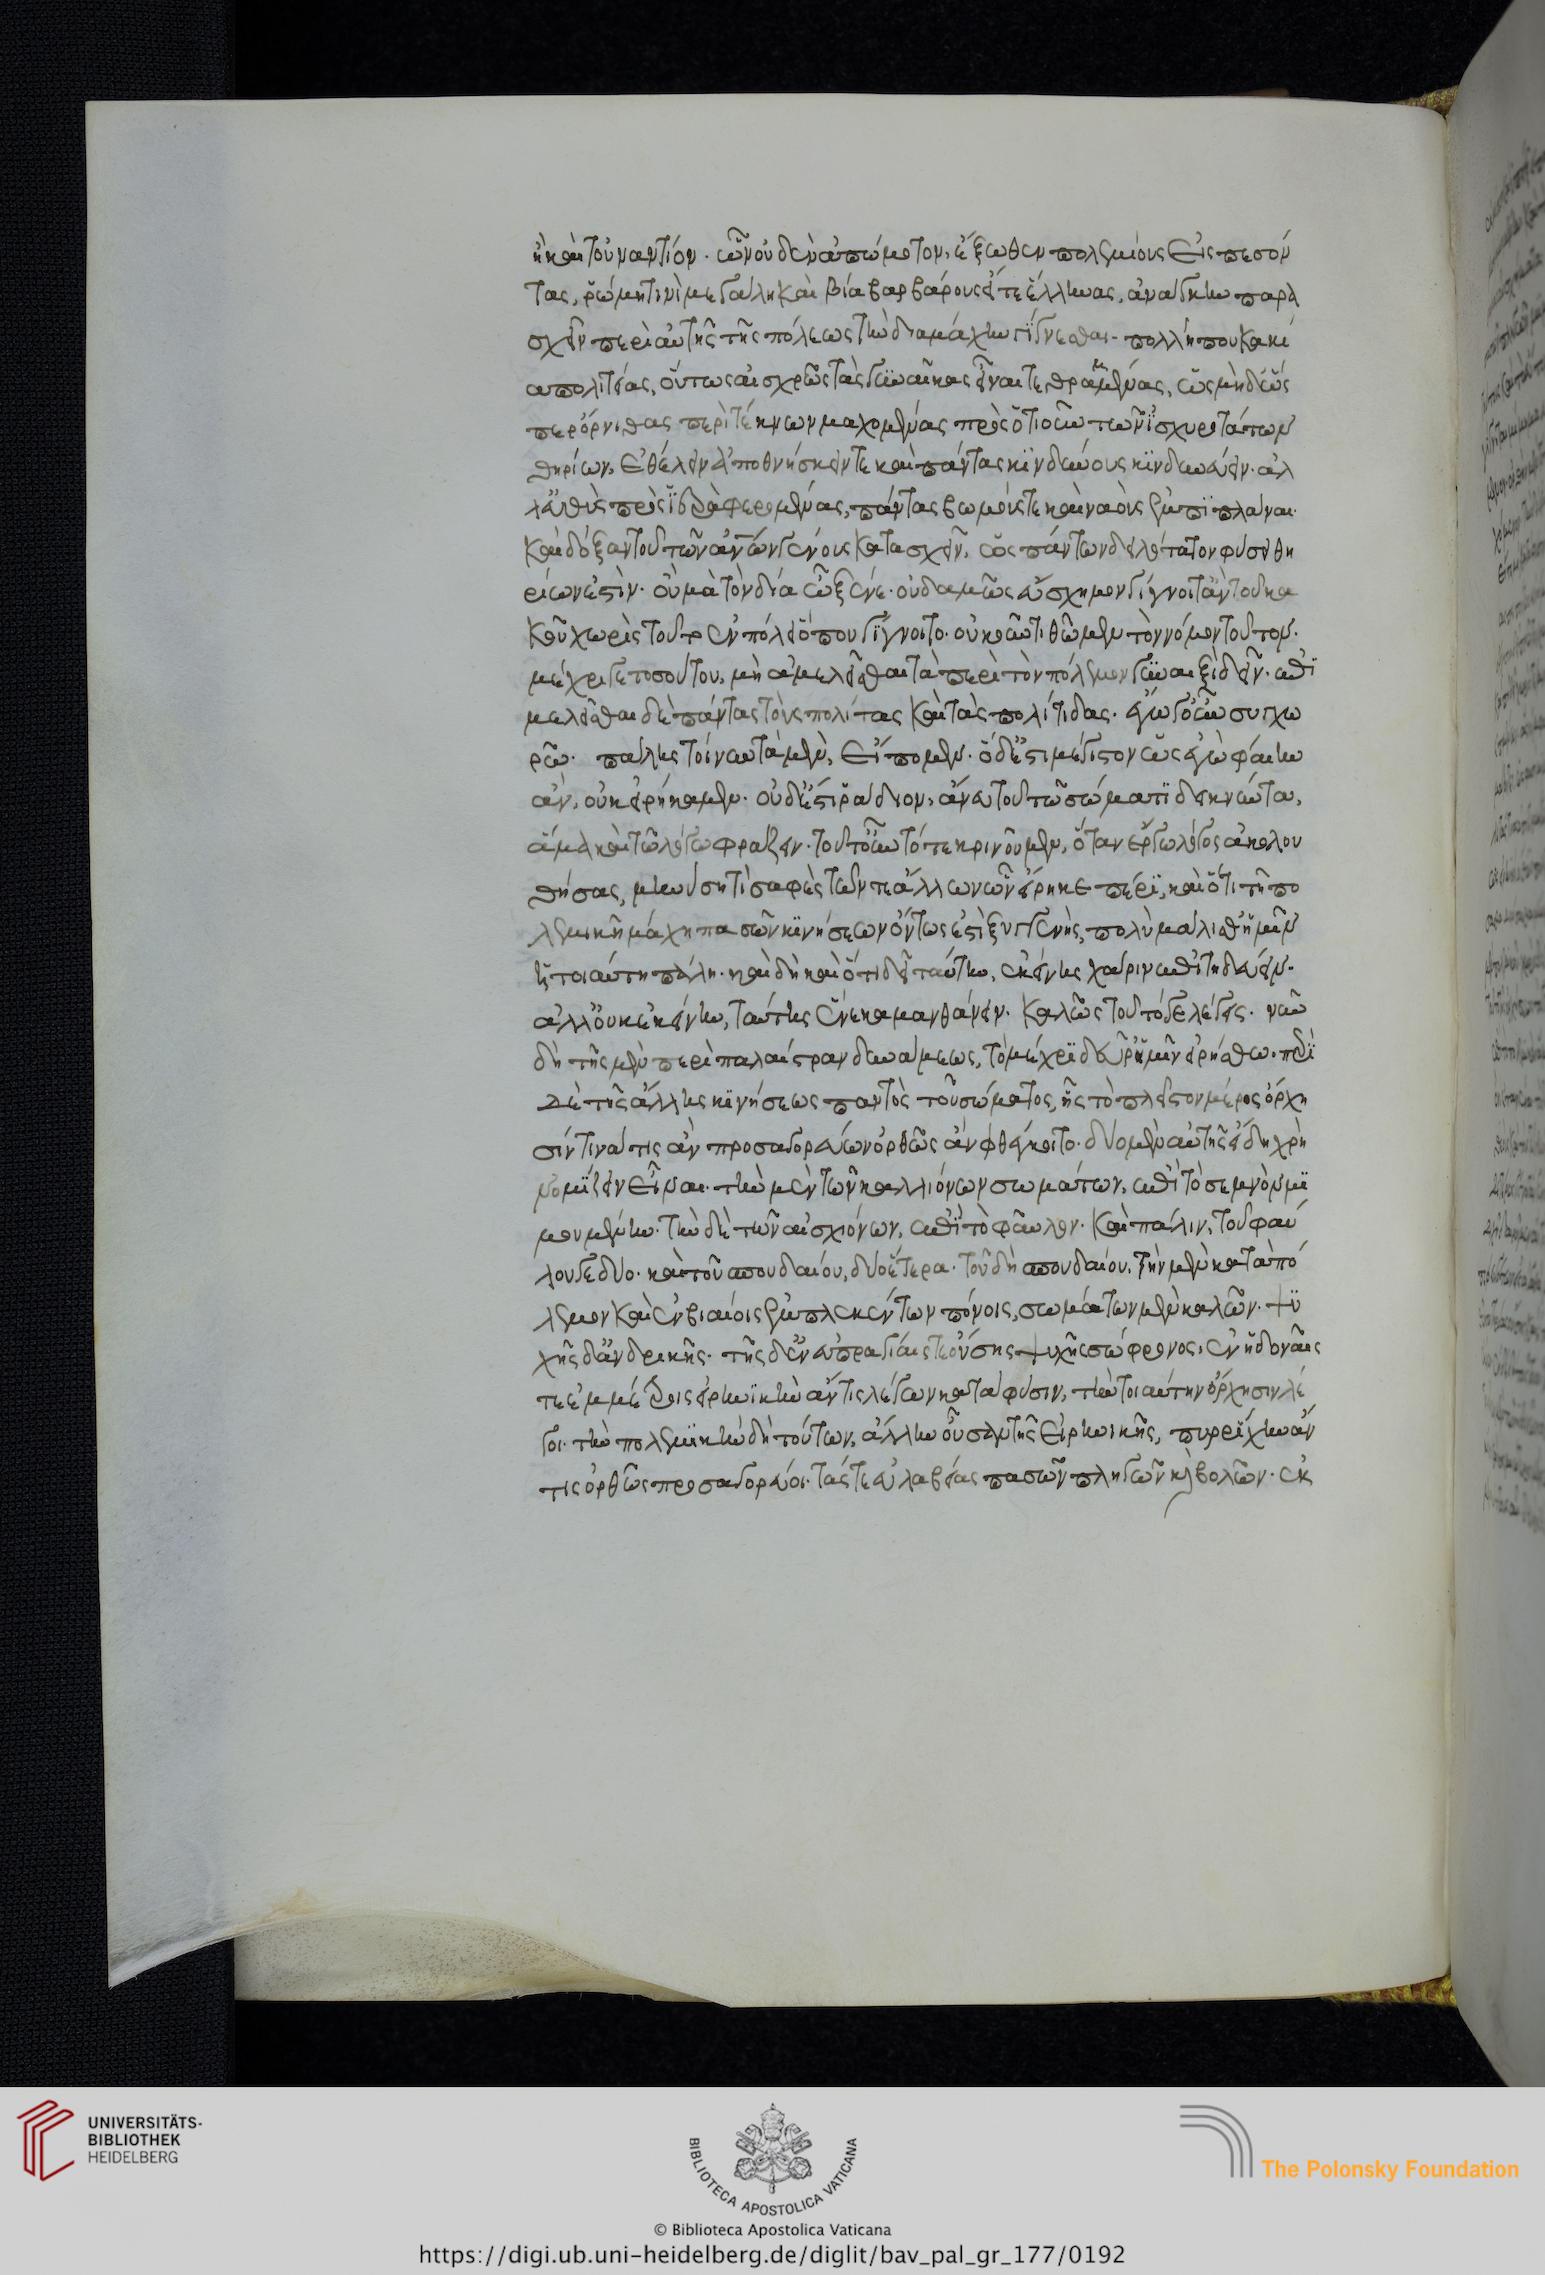 ἢ καὶ τοὐναντίον. ὧν οὐδὲν ἀπώμοτον, ἔξωθεν πολεμίους εἰσπεσόν
τας, ῥώμῃ τινὶ μεγάλῃ καὶ βία βαρβάρους εἴτε ἕλληνας, ἀνάγκην παρα
σχεῖν περὶ αὐτῆς τῆς πόλεως τὴν διαμάχην γίγνεσθαι. πολλή που κακί
α πολιτείας, οὕτως αἰσχρῶς τὰς γυναῖκας εἶναι τεθραμμένας, ὡς μηδ' ὥς
περ ὄρνιθας περὶ τέκνων μαχομένας πρὸς ὁτιοῦν τῶν ἰσχυροτάτων
θηρίων, ἐθέλειν ἀποθνήσκειν τε καὶ πάντας κινδύνους κινδυνεύειν. ἀλ
λ' εὐθὺς πρὸς ἱερὰ φερομένας, πάντας βωμούς τε καὶ ναοὺς ἐμπιπλάναι.
καὶ δόξαν τοῦ τῶν ἀνθρώπων γένους κατασχεῖν, ὡς πάντων δειλότατον φύσει θη
ρίων ἐστίν. οὐ μὰ τὸν δία ὦ ξένε. οὐδαμῶς εὔσχημον γίγνοιτ' ἂν τοῦ κα
κοῦ χωρὶς τοῦτο ἐν πόλει ὅπου γίγνοιτο. οὐκοῦν τιθῶμεν τὸν νόμον τοῦτον.
μέχρι γε τοσούτου, μὴ ἀμελεῖσθαι τὰ περὶ τὸν πόλεμον γυναιξὶ δεῖν. ἐπι
μελεῖσθαι δὲ πάντας τοὺς πολίτας καὶ τὰς πολίτιδας. ἐγὼ γοῦν συγχω
ρῶ. πάλης τοίνυν τὰ μὲν, εἴπομεν. ὃ δ' ἔστι μέγιστον ὡς ἐγὼ φαίην
ἂν, οὐκ εἰρήκαμεν. οὐδ' ἔστι ῥάδιον, ἄνευ τοῦ τῶ σώματι δεικνύντα,
ἅμα καὶ τῶ λόγω φράζειν. τοῦτ' οὖν τότε κρινοῦμεν, ὅταν ἔργω λόγος ἀκολου
θήσας, μηνύση τὶ σαφὲς τῶν τε ἄλλων ὧν εἴρηκε πέρι, καὶ ὅτι τῆ πο
λεμικῆ μάχη πασῶν κινήσεων ὄντως ἐστὶ ξυγγενὴς, πολὺ μάλισθ' ἡμῖν
ἡ τοιαύτη πάλη. καὶ δὴ καὶ ὅτι δεῖ ταύτην, ἐκείνης χάριν ἐπιτηδεύειν.
ἀλλ' οὐκ ἐκείνην, ταύτης ἕνεκα μανθάνειν. καλῶς τοῦτό γε λέγεις. νῦν
δὴ τῆς μὲν περὶ παλαίστραν δυνάμεως, τὸ μέχρι δεῦρ' ἡμῖν εἰρήσθω. περὶ
δὲ τῆς ἄλλης κινήσεως παντὸς τοῦ σώματος, ἧς τὸ πλεῖστον μέρος ὄρχη
σίν τινά τις ἂν προσαγορεύων ὀρθῶς ἂν φθέγγοιτο. δύο μὲν αὐτῆς εἴδη χρὴ
νομίζειν εἶναι. τὴν μὲν τῶν καλλιόνων σωμάτων, ἐπὶ τὸ σεμνὸν μι
μουμένην. τὴν δὲ τῶν αἰσχιόνων, ἐπὶ τὸ φαῦλον. καὶ πάλιν, τοῦ φαύ
λου γε δύο. καὶ τοῦ σπουδαίου, δύο ἕτερα. τοῦ δὴ σπουδαίου, τὴν μὲν κατὰ πό
λεμον καὶ ἐν βιαίοις ἐμπλεκέντων πόνοις, σωμάτων μὲν καλῶν. ψυ
χῆς δ' ἀνδρικῆς. τῆς δ' ἐν εὐπραγίαις τε οὔσης ψυχῆς σώφρονος, ἐν ἡδοναῖς
τε ἐμμέτροις εἰρηνικὴν ἄν τις λέγων κατὰ φύσιν, τὴν τοιαύτην ὄρχησιν λέ
γοι. τὴν πολεμικὴν δὴ τούτων, ἄλλην οὖσαν τῆς εἰρηνικῆς, πυρρίχην ἄν
τις ὀρθῶς προσαγορεύοι. τάς τε εὐλαβείας πασῶν πληγῶν καὶ βολῶν. ἐκ
UNIVERSITÄTS-
BIBLIOTHEK
HEIDELBERG
BIBLIOTECA APOSTOLICA VATICANA
The Polonsky Foundation
© Biblioteca Apostolica Vaticana
https://digi.ub.uni-heidelberg.de/diglit/bav_pal_gr_177/0192